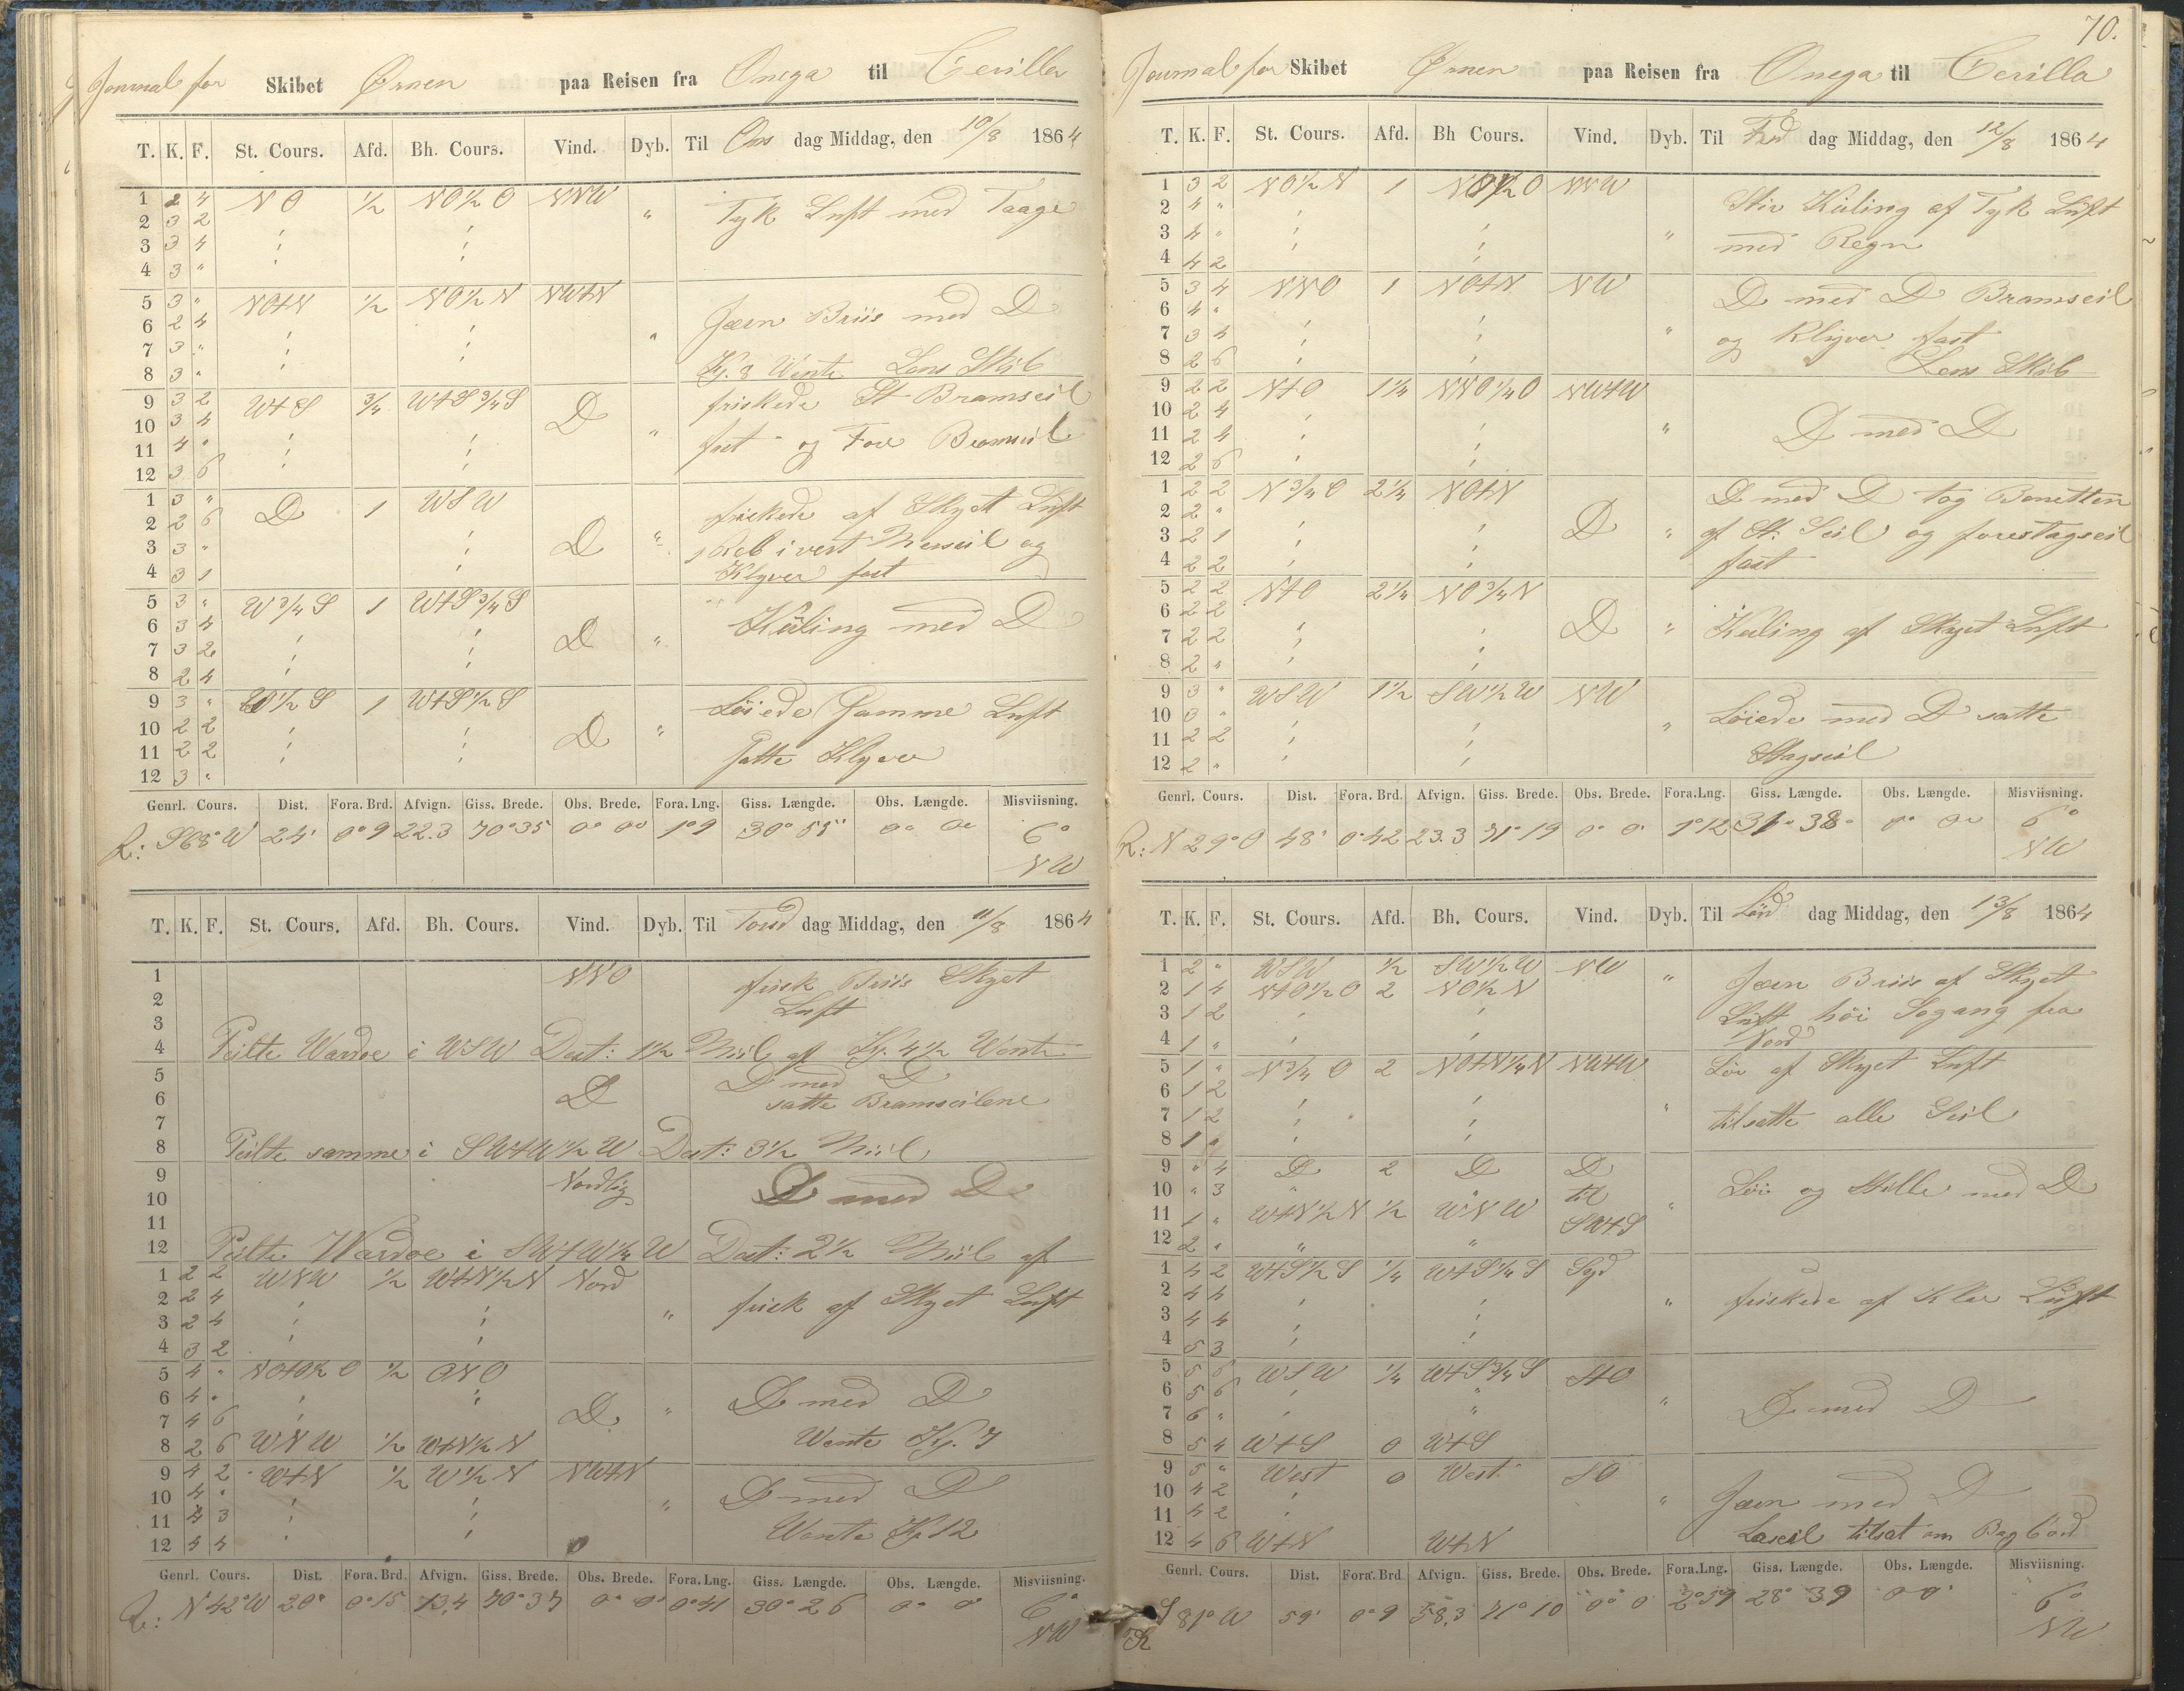 Journal for Skibet Ørnen paa Reisen fra Onega til Cerilla
T. K. F. St. Cours. Afd. Bh. Cours. Vind. Dyb. Til Ons dag Middag, den 10/8 1864
1 2 4 NO 1/2 NO1/2O NNW " Tyk Luft med Taage
2 3 2
3 3 4
4 3 "
5 3 " NO+N 1/2 NO1/2N NW+N " Jævn Briis med D
6 2 4
7 3 "
8 3 " Kj. 8 Vente Lens Skib
9 3 2 W+S 3/4 W+S3/4S D " friskede St Bramseil
10 3 4
11 4 " fast og Fore Bramseil
12 3 6
1 3 " D 1 WSW D " friskede af Skyet Luft
2 2 6
3 3 " 1 Reb i vert Merseil og
4 3 1 Klyver fast
5 3 " W3/4S 1 W+S3/4S D " Kuling med D
6 3 4
7 3 2
8 2 4
9 3 " W1/2S 1 W+S1/2S D " Løiede Samme Luft
10 2 2
11 2 2 Satte Klyver
12 3 "
Genrl. Cours. Dist. Fora. Brd. Afvign. Giss. Brede. Obs. Brede. Fora. Lng. Giss. Længde. Obs. Længde. Misviisning.
R: S68°W 24' 0°9 22.3 70°35 0° 0° 1°9 30°55" 0° 0° 6° NW
T. K. F. St. Cours. Afd. Bh. Cours. Vind. Dyb. Til Torsd dag Middag, den 11/8 1864
1 NNO frisk Briis Skyet
2 Luft
3
4 Peilte Wardoe i WSW Dist: 1 1/2 Miil af Kj. 4 1/2 Vente
5 D D med D
6 satte Bramseilene
7
8 Peilte samme i SW+W1/2W Dist: 3 1/2 Miil
9 Nordlig D med D
10
11
12 Peilte Wardoe i SW+W1/4W Dist: 2 1/2 Miil af
1 2 2 WNW 1/2 W+N1/2N Nord " frisk af Skyet Luft
2 2 4
3 2 4
4 3 2
5 4 " NO+O1/2O 1/2 ONO D " D med D
6 4 "
7 4 6
8 2 6 WNW 1/2 W+N1/2N Vente Kj. 7
9 4 2 W+N 1/2 W1/2N NW+N " D med D
10 4 "
11 4 3 Vente Kj 12
12 4 4
Genrl. Cours. Dist. Fora. Brd. Afvign. Giss. Brede. Obs. Brede. Fora. Lng. Giss. Længde. Obs. Længde. Misviisning.
R: N42°W 20" 0°15 13,4 70°37 0° 0° 0°41 30°26 0° 0° 6° NW
70.
Journal for Skibet Ørnen paa Reisen fra Onega til Cerilla
T. K. F. St. Cours. Afd. Bh Cours. Vind. Dyb. Til Fred dag Middag, den 12/8 1864
1 3 2 NO1/2N 1 NO1/2O NNW " Stiv Kuling af Tyk Luft
2 4 "
3 4 " med Regn
4 4 2
5 3 4 NNO 1 NO+N NW " D med D Bramseil
6 4 "
7 3 4 og Klyver fast
8 2 6 Lens Skib
9 2 2 N+O 1 1/4 NNO1/4O NW+W " D med D
10 2 4
11 2 4
12 2 6
1 2 2 N3/4O 2 1/4 NO+N D " D med D tog Bonetten
2 2 "
3 2 1 af St. Seil og forestagseil
4 2 2 fast
5 2 2 N+O 2 1/4 NO3/4N D " Kuling af Skyet Luft
6 2 2
7 2 2
8 2 "
9 3 " WSW 1 1/2 SW1/2W NW " Løiede med D satte
10 3 "
11 2 2 Stagseil
12 2 "
Genrl. Cours. Dist. Fora. Brd. Afvign. Giss. Brede. Obs. Brede. Fora.Lng. Giss. Længde. Obs. Længde. Misviisning.
R: N29°O 48' 0°42 23.3 71°19 0° 0' 1°12 31°38" 0° 0° 6° NW
T. K. F. St. Cours. Afd. Bh. Cours. Vind. Dyb. Til Lørd dag Middag, den 13/8 1864
1 2 " WSW 1/2 SW1/2W NW " Jævn Briis af Skyet
2 1 4 N+O1/2O 2 NO1/2N
3 1 2 Luft høi Søgang fra
4 1 " Nord
5 1 " N3/4O 2 NO+N1/4N NW+W " Løi af Skyet Luft
6 1 2
7 1 2 tilsatte alle Seil
8 1 "
9 " 4 D 2 D D " Løi og Stille med D
10 " 3 til
11 1 " W+N1/2N 1/2 WNW SW+S
12 2 " " "
1 4 2 W+S1/2S 1/4 W+S1/4S Syd " friskede af Klar Luft
2 4 4
3 4 4
4 5 3
5 5 6 WSW 1/4 W+S3/4S S+O " D med D
6 5 6
7 6 "
8 5 4 W+S 0 W+S
9 5 " West 0 West SO " Jævn med D
10 4 2
11 4 2
12 4 6 W+N W+N Læseil tilsat om Bagbord
Genrl. Cours. Dist. Fora. Brd Afvign. Giss. Brede. Obs. Brede. Fora.Lng. Giss. Længde. Obs. Længde. Misviisning.
R S81°W 59' 0°9 58.3 71°10 0° 0 2°59 28°39 0 0' 6° NW